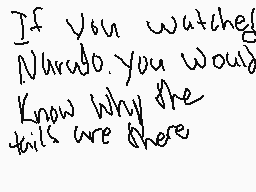 If you watched
Naruto. you would
know why the
tails are there